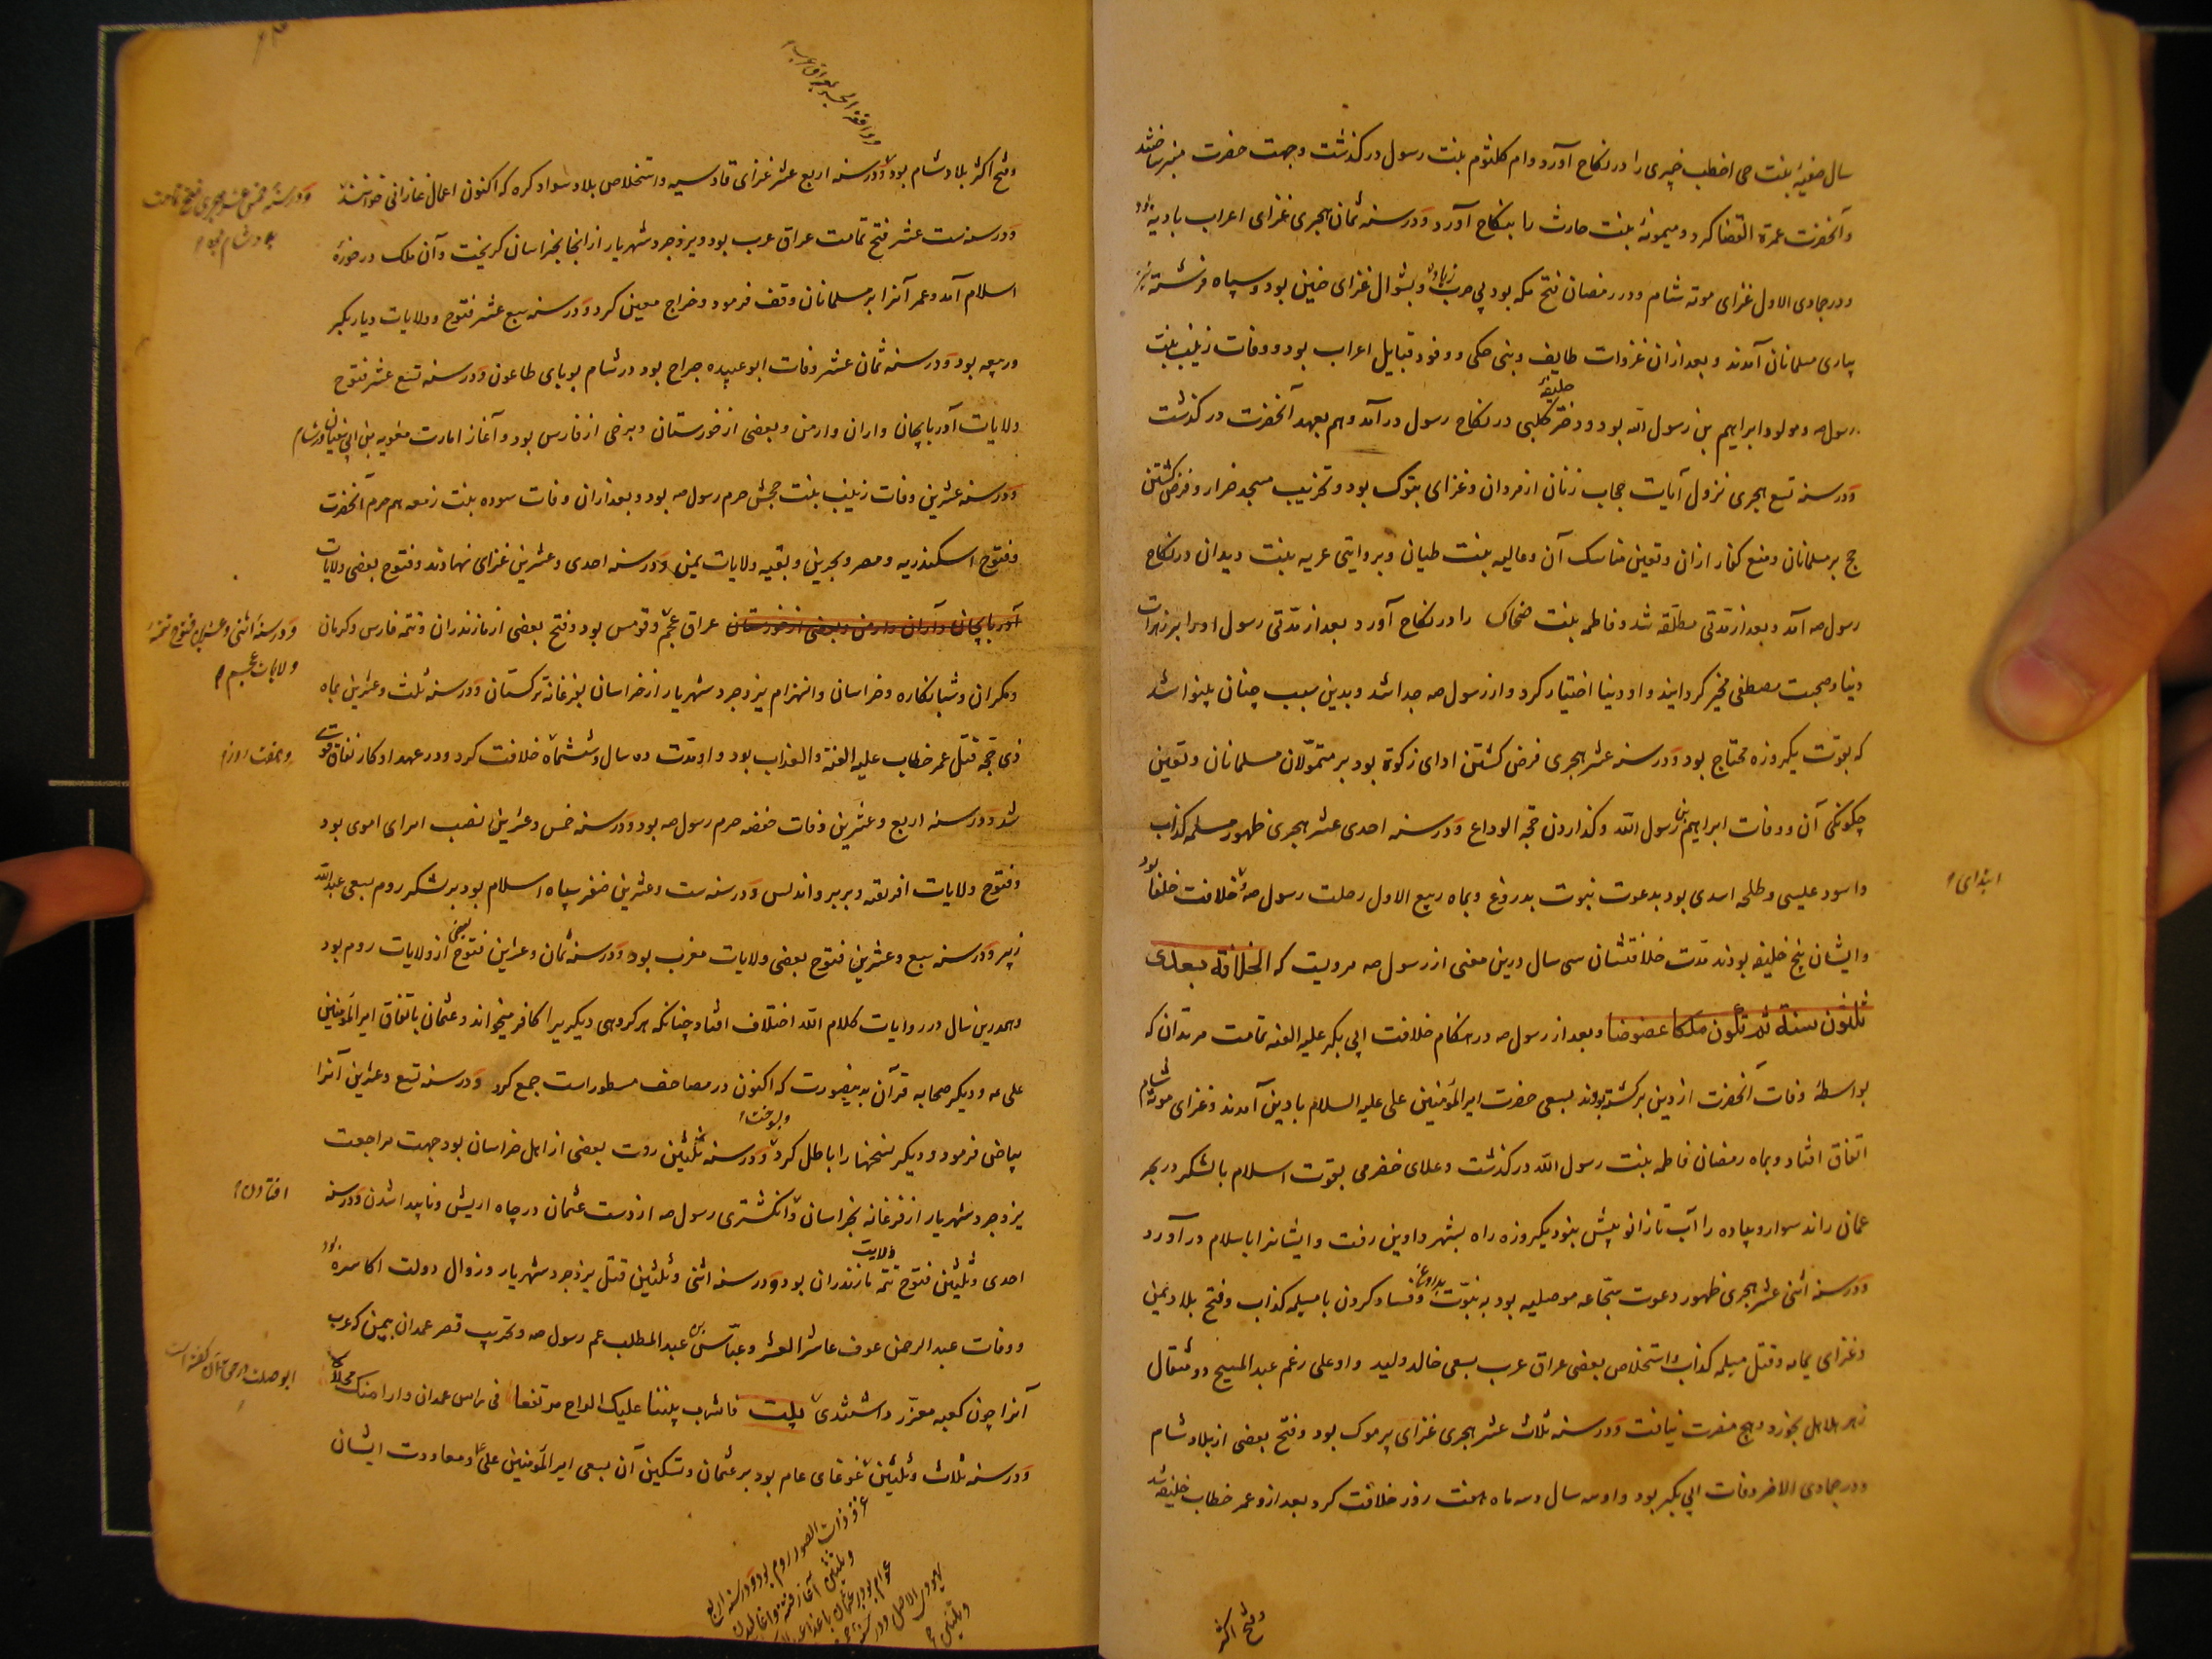 سال صفیهٔ بنت حی اخطب خیبری را در نکاح آورد و ام کلثوم بنت رسول درگذشت و جهت حضرت منبر ساختند
و آنحضرت عمرة القضا کرد و میمونهٔ بنت حارث را بنکاح آورد و در سنه ثمان هجری غزای اعراب بادیه بود
و در جمادی الاول غزای موته شام و در رمضان فتح مکه بود بی حرب و بشوال غزای حنین بود و سپاه فرشته
بیاری مسلمانان آمدند و بعد از ان غزوات طایف و بنی حکی و وفود قبایل اعراب بود و وفات زینب بنت
رسول صه و مولود ابراهیم بن رسول الله بود و دختر خلیفهٔ کلبی در نکاح رسول درآمد و هم بعهد آنحضرت درگذشت
و در سنه تسع هجری نزول آیات حجاب زنان از مردان و غزای بتوک بود و تخریب مسجد ضرار و فرض گشتن
حج بر مسلمانان و منع کفار ازان و تعین مناسک آن و عالیه بنت طبیان و بروایتی عربه بنت دیدان در نکاح
رسول صه آمد و بعد از مدتی مطلقه شد و فاطمه بنت ضحاک را در نکاح آورد بعد از مدتی رسول او را بر زهرات
دنیا و صحبت مصطفی مخیر کردانید و او دنیا اختیار کرد و از رسول صه جدا شد و بدین سبب چنان بینوا شد
که بقوت یکروزه محتاج بود و در سنه عشر هجری فرض کشتن ادای زکوة بود بر متمولان مسلمانان و تعین
چگونگی آن و وفات ابراهیم بن رسول الله و گذاردن حجه الوداع و در سنه احدی عشر هجری ظهور مسیلمه کذاب
و اسود عیسی و طلحه اسدی بود بدعوت نبوت بدروغ و بماه ربیع الاول رحلت رسول صه خلافت خلفا بود
ابتدای
و ایشان پنج خلیفه بودند مدت خلافتشان سی سال و درین معنی از رسول صه مرویست که الخلافة بعدی
ثلثون سنة ثم تکون ملکا عضوضا و بعد از رسول صه در هنکام خلافت ابی بکر علیه العنه تمامت مرتدان که
بواسطهٔ وفات آنحضرت از دین برگشته بودند بسعی حضرت امیر المومنین علی علیه السلام بادین آمدند و غزای موته شام
اتفاق افتاد و بماه رمضان فاطمه بنت رسول الله درگذشت و علای خضرمی بقوت اسلام با لشکر در بحر
عمان راند سوار و پیاده را آب تا زانو بیش بنود یکروزه راه بشهر دادین رفت و ایشانرا باسلام درآورد
و در سنه اثنی عشر هجری ظهور دعوت سجاعه موصلیه بود به نبوت بدروغ و فساد کردن با مسیلمه کذاب و فتح بلاد یمن
و غزای یمامه و قتل مسیلمه کذاب و استخلاص بعضی عراق عرب بسعی خالد ولید و او علی رغم عبد المسیح دو مثقال
زهر هلاهل بخورد و هیچ مضرت نیافت و در سنه ثلاث عشر هجری غزای یرموک بود و فتح بعضی از بلاد شام
و در جمادی الاخر وفات ابی بکر بود و او سه سال و سه ماه هفت روز خلافت کرد بعد از و عمر خطاب خلیفه شد
و فتح اکثر
و واقعهٔ الجسر بعراق عرب
و فتح اکثر بلاد شام بود و در سنه اربع عشر غزای قادسیه و استخلاص بلاد سواد کره که اکنون اعمال غازانی خوانند
و در سنه خمس عشر هجری فتح تمامت بلاد شام بود
و در سنه ست عشر فتح تمامت عراق عرب بود و یزدجرد شهریار از انجا بخراسان گریخت و آن ملک در حوزهٔ
اسلام آمد و عمر آنرا بر مسلمانان وقف فرمود و خراج معین کرد و در سنه سبع عشر فتوح و ولایات دیار بکر
و ربیعه بود و در سنه ثمان عشر وفات ابو عبیده جراح بود در شام بوبای طاعون و در سنه تسع عشر فتوح
ولایات آذربایجان و اران و ارمن و بعضی از خورستان و برخی از فارس بود و آغاز امارت معویه بن ابی سفیان در شام
و در سنه عشرین وفات زینب بنت جحش حرم رسول صه بود و بعد از ان وفات سوده بنت زمعه هم حرم آنحضرت
و فتوح اسکندریه و مصر و بحرین و بقیه ولایات یمن و در سنه احدی و عشرین غزای نهاوند و فتوح بعضی ولایات
آذربایجان و آران و ارمن و بعضی از خورستان عراق عجم و قومس بود و فتح بعضی از مازندران و تتمه فارس و کرمان
و در سنهٔ اثنی و عشرین فتوح تتمهٔ ولایات عجم
و مکران و شبانکاره و خراسان و انهزام یزدجرد شهریار از خراسان بفرغانهٔ ترکستان و در سنه ثلث و عشرین بماه
ذی حجه قتل عمر خطاب علیه العنه و العذاب بود و او مدت ده سال و ششماه خلافت کرد و در عهد او کار نفاق قوت
و هفت روز
شد و در سنه اربع و عشرین وفات حفصه حرم رسول صه بود و در سنه خمس و عشرین نصب امرای اموی بود
و فتوح ولایات افریقه و بربر و اندلس و در سنه ست و عشرین ظفر سپاه اسلام بود بر لشکر روم بسعی عبدالله
زبیر و در سنه سبع و عشرین فتوح بعضی ولایات مغرب بود و در سنه ثمان و عشرین فتوح بعضی از ولایات روم بود
و همدرین سال در روایات کلام الله اختلاف افتاد چنانکه هر کروهی دیکریرا کافر میخواند و عثمان باتفاق امیر المومنین
علی عه و دیکر صحابه قرآن بدینصورت که اکنون در مصاحف مسطور است جمع کرد و در سنه تسع و عشرین آنرا
بیاض فرمود و دیکر نسخها را باطل کرد و بسوخت و در سنه ثلثین روت بعضی از اهل خراسان بود جهت مراجعت
یزدجرد شهریار از فرغانه بخراسان و انگشتری رسول صه از دست عثمان در چاه اریش و ناپیدا شدن و در سنه
افتادن
احدی و ثلثین فتوح تتمه ولایت مازندران بود و در سنه اثنی و ثلثین قتل یزدجرد شهریار و زوال دولت اکاسره بود
و وفات عبد الرحمن عوف عاشر العشر و عباس بن عبد المطلب عم رسول صه و تخریب قصر عمدان بیمن که عرب
آنرا چون کعبه معزز داشتندی بیت فاشرب پلننا علیک الداح مرتفعا فی راس عمدان دارا منک محلالا
و در سنه ثلاث و ثلثین غوغای عام بود بر عثمان و تسکین آن بسعی امیر المومنین علی و معاودت ایشان
غزو ذات الصور روم بود و در سنه اربع
و ثلثین آغاز فتنه